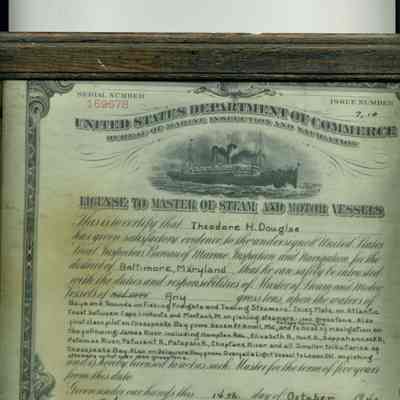 SERIAL NUMBER
169678
ISSUE NUMBER
7-10
UNITED STATES DEPARTMENT OF COMMERCE
BUREAU OF MARINE INSPECTION AND NAVIGATION
LICENSE TO MASTER OF STEAM AND MOTOR VESSELS
This is to certify that Theodore H. Douglas
has given satisfactory evidence to the undersigned United States
Local Inspectors, Bureau of Marine Inspection and Navigation for the
district of Baltimore, Maryland that he can safely be intrusted
with the duties and responsibilities of Master of Steam and Motor
Vessels of Any gross tons, upon the waters of
Bays and Sounds on Fishing Freights and Towing Steamers. First Mate, on Atlantic
Coast between Capes
first class pilot on Chesapeake Bay from
James River, including Hampton Rds., Elizabeth R., York R., Rappahannock R.,
Potomac River, Patuxent R., Patapsco R., Choptank River and all smaller tributaries of
Chesapeake Bay. Also on Delaware Bay from
and is hereby licensed to act as such Master for the term of five years
from this date.
Given under our hands this 14th day of October